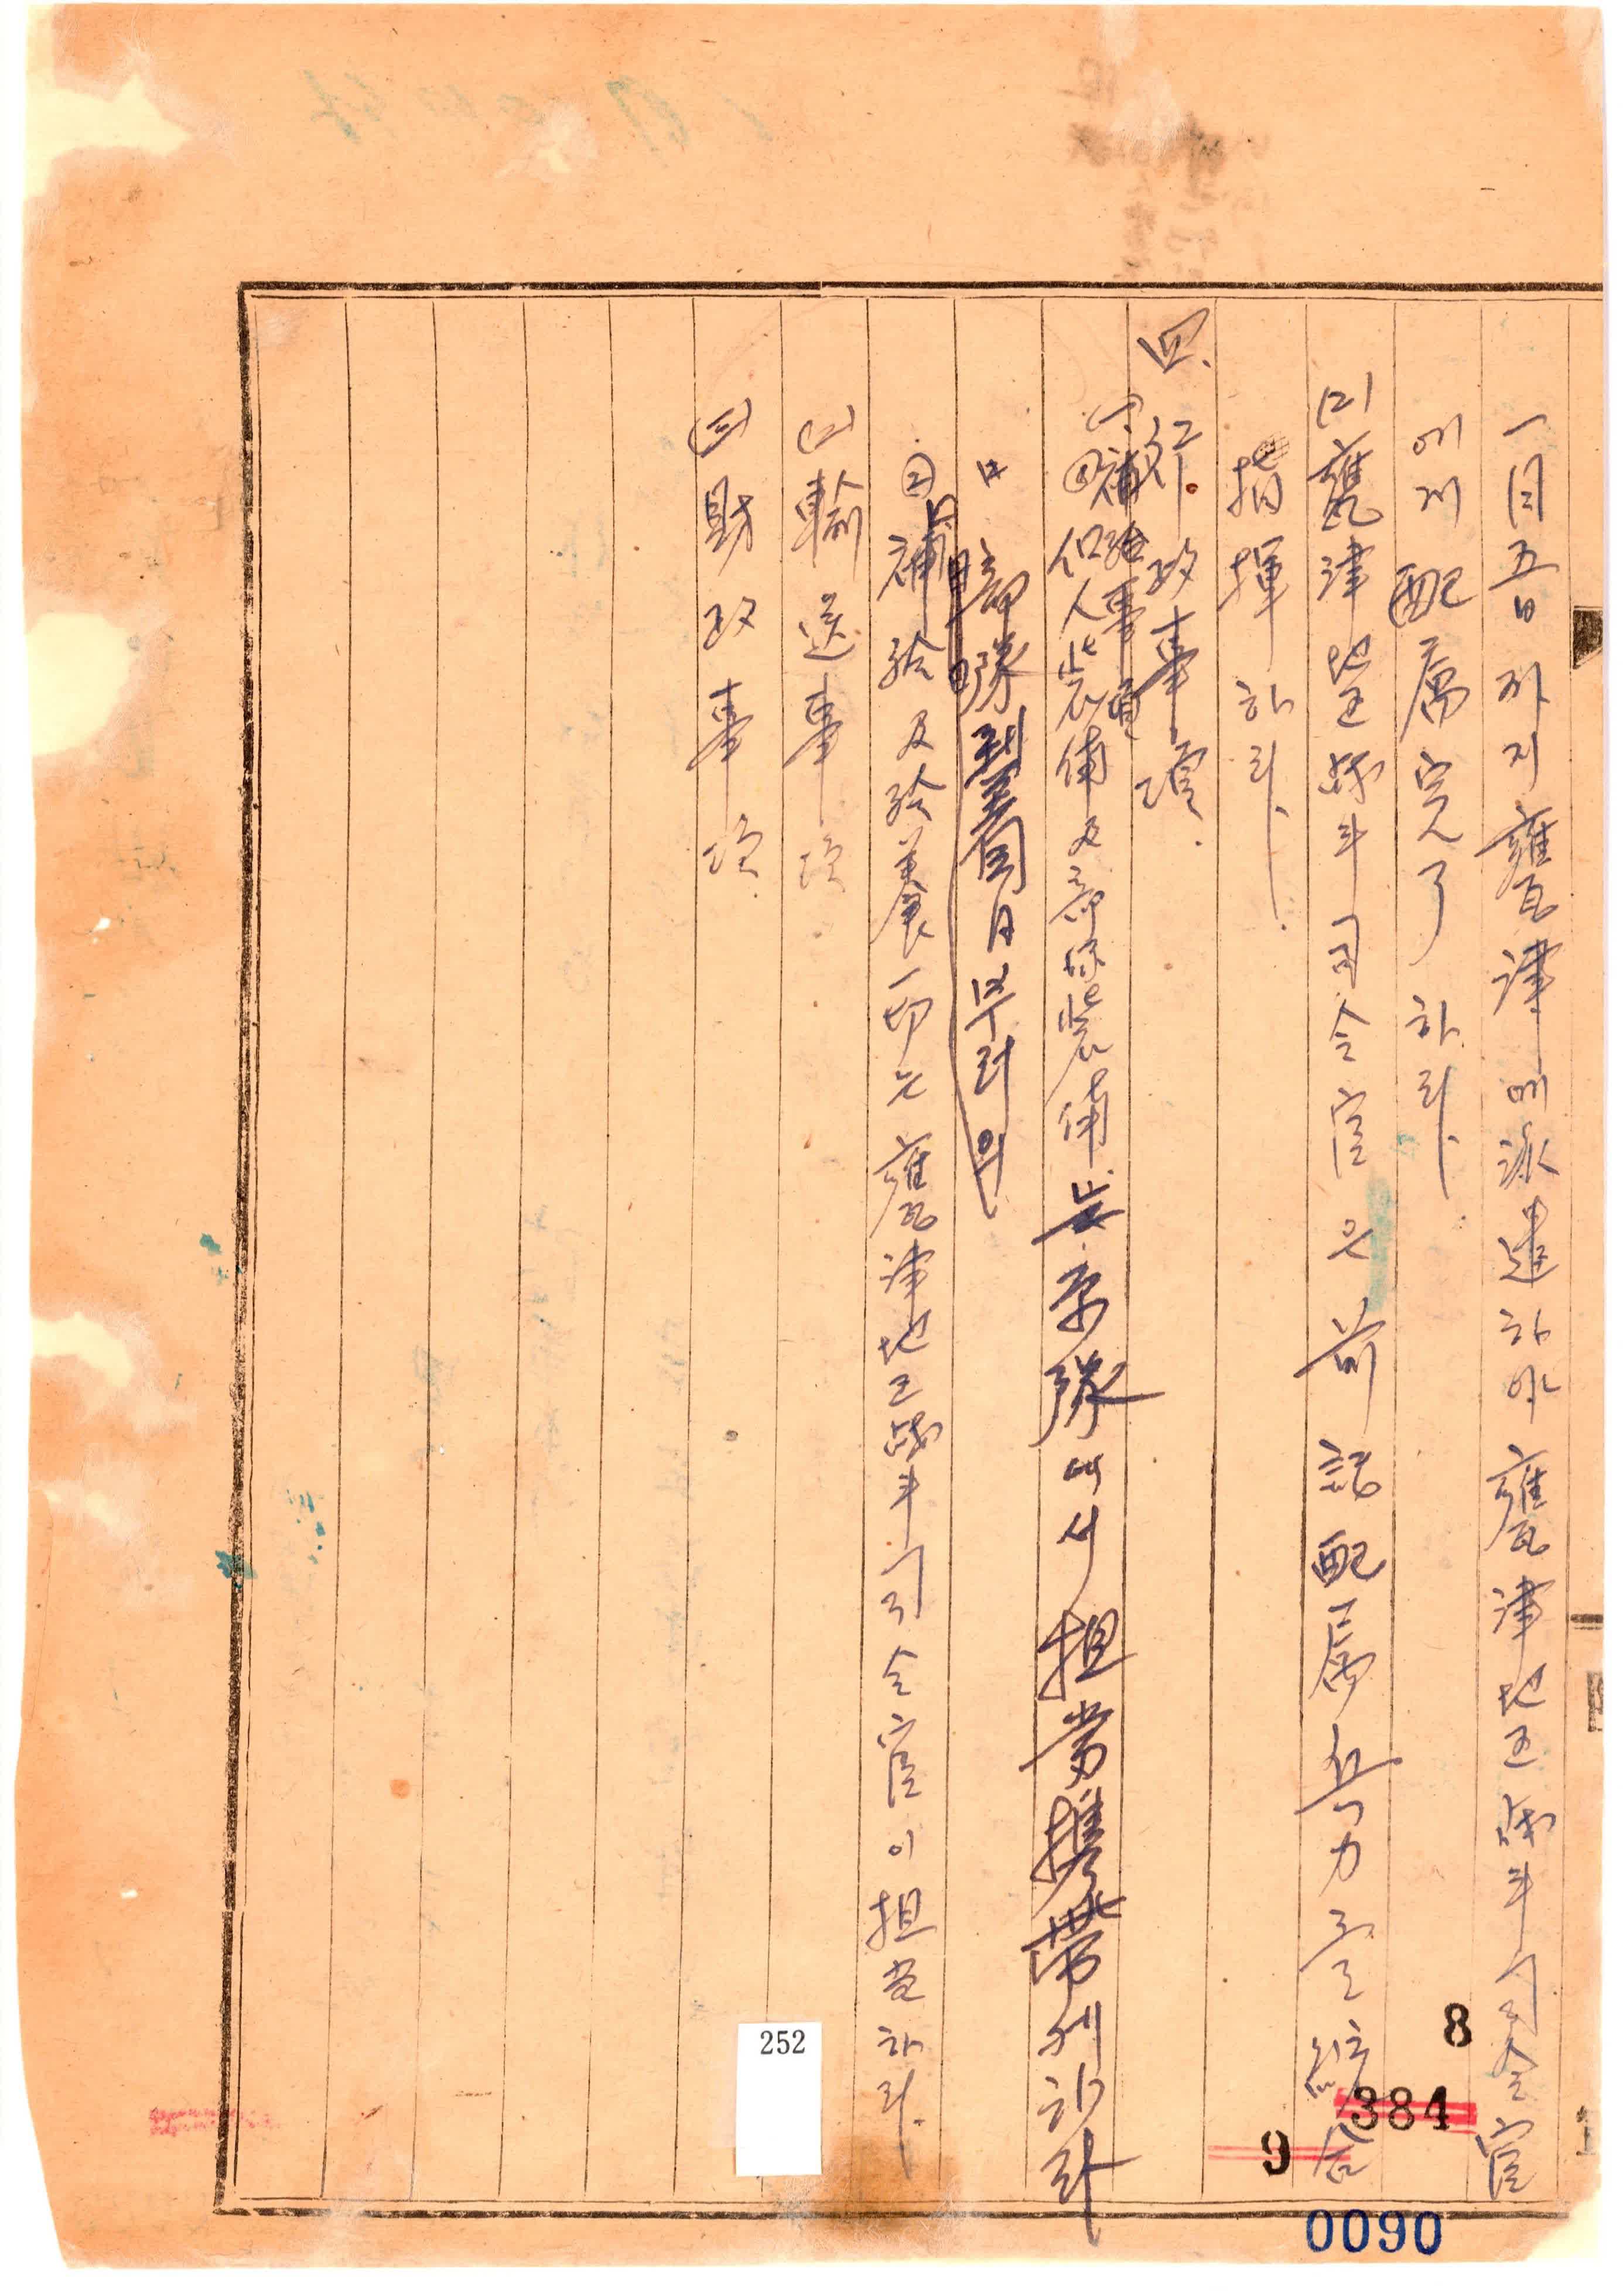 一月五日까지 甕津에 派遣하야 甕津地区战斗司令官
에게 配属完了하라.
(2) 甕津地区战斗司令官은 前記配属兵力을 綜合
指揮하라.
四. 行政事項.
(一) 補給事項
① 個人装備及部隊装備는 原隊에서 担当携帯케하라
部隊到着日부터의
② 補給及給養一切는 甕津地区战斗司令官이 担当하라.
(二) 輸送事項
(三) 財政事項
252
8
384
9
0090